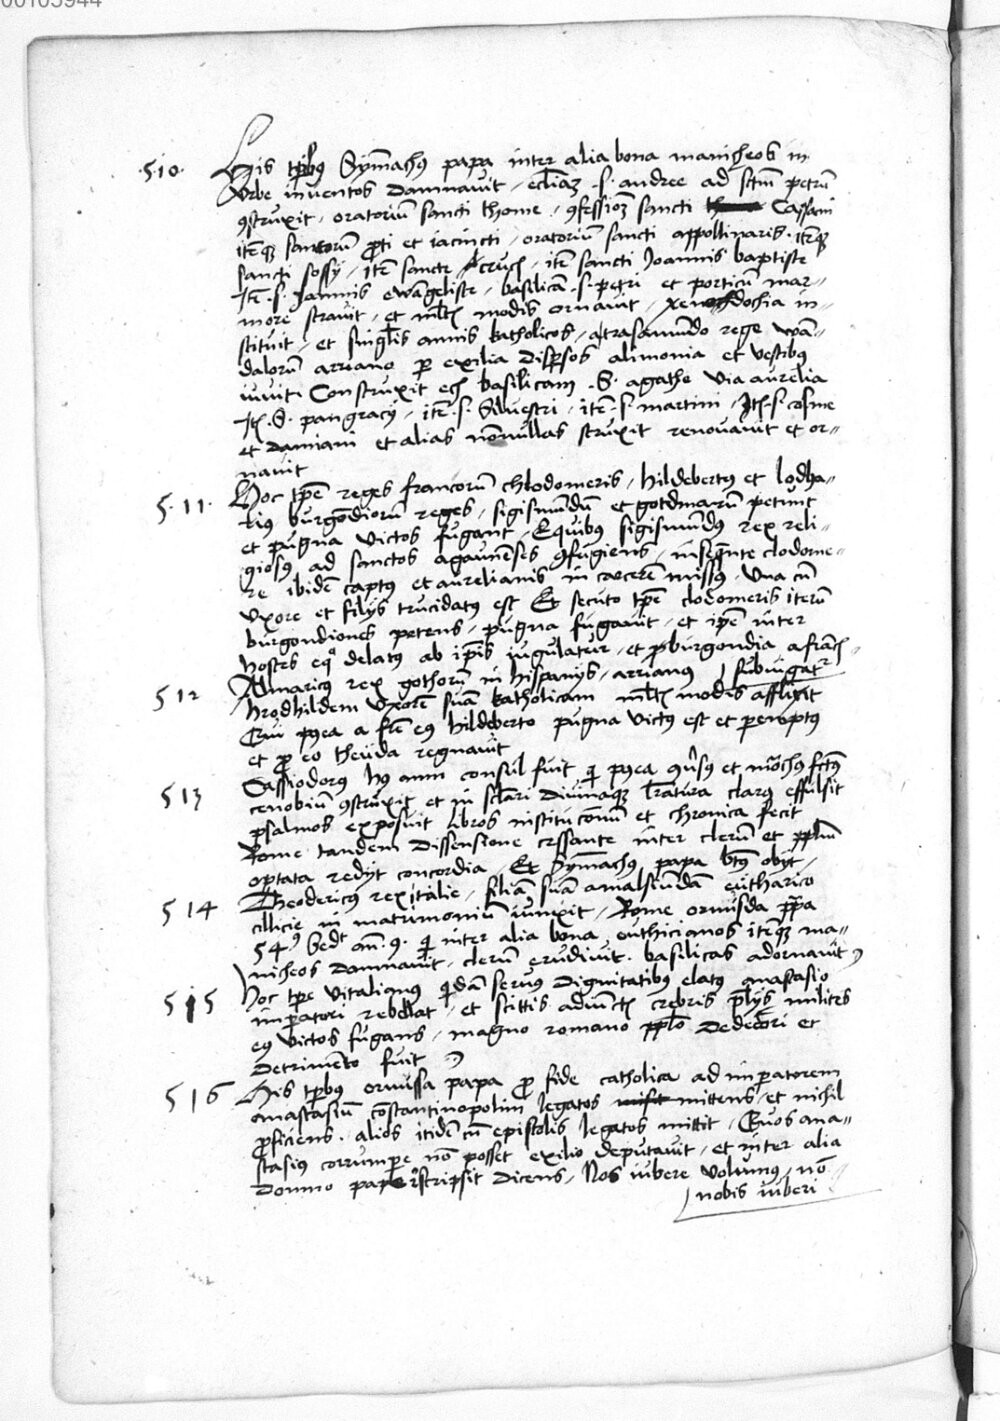 00103944
·510· His tpibus Symachus papa inter alia bona manicheos in
Vrbe inventos damnavit, eccliaz .s. andree ad sctm petrum
9struxit, oratorium sancti thome, 9fessionem sancti Cassiani
itēqz sanctorū proti et iacincti, oratoriū sancti appollinaris. itēqz
sancti sossy, itē sancte crucis, itē sancti Joannis baptiste
Itē .s. Joannis ewāgeliste, basilicā .s. petri et porticū mar=
more stravit, et mltis modis ornavit, xenodochia in=
stituit, et singlis annis katholicos, a trasamūdo rege wā=
dalorū arriano p exilia dispsos alimonia et vestibus
iuvit. Construxit eciā basilicam .S. agathe via aurelia
Itē .S. pangracy, itē .s. Silvestri, itē .s. martini, Itē .s. cosme
et damiani et alias nōnullas struxit renovavit et or=
navit
5·11· Hoc tpe reges francorū chlodomeris, hildebertus et lodha=
rius burgōdiorū reges, sigismūdū et gotdmarū petunt
et pugna victos fugant, Equibus sigismūdus rex reli=
giosus ad sanctos agaunēses 9fugiens, inseqūte clodome=
re ibidē captus et aurelianis in carcerē missus, vna cū
vxore et filys trucidatus est Et secuto tpe clodomeris iterū
burgondiones petens, pugna fugavit, et ipse inter
hostes eqo delatus ab ipsis iugulatur, et burgondia a francis
subiugatr
512 Almaricus rex gothorū in hispanys, arrianus
hrodhildem vxorē suā katholicam mltis modis afflixit
Qui postea a fre eius hildeberto pugna victus est et peremptus
et pro eo theuda regnavit
513 Cassiodorus hoc anno consul fuit qi postea 9versus et monchus fctus
cenobiū 9struxit et in sclari divinaqz lratura clarus effulsit
psalmos exposuit libros institucionū et chronica fecit
Rome tandem dissensione cessante inter clerū et pplm
optata redyt concordia, Et Symachus papa btus obyt,
514 Theodericus rex italie, filiā suā amalsiundā euthavico
cillicie in matrimoniū iunxit, Rome ormisda papa
54us sedt an. 9. qi inter alia bona euthicianos itēqz ma=
nicheos damnavit, clerū erudivit. basilicas adornavit
515 Hoc tpe vitalianus qidā servus dignitatibus elatus anastasio
impatori rebellat, et scittis adiunctis crebris prelys milites
eius victos fugans, magno romano pplo dedecori et
detrimēto fuit
516 His tpibus ormissa papa pro fide catholica ad impatorem
anastasiū constantinopolim legatos misit mittens, et nichil
proficiens. alios itidē cū epistolis legatos mittit, Quos ana=
stasius corrumpe nō posset exilio deputavit, et inter alia
domno pape rescripsit dicens, Nos iubere volumus, nō
nobis iuberi